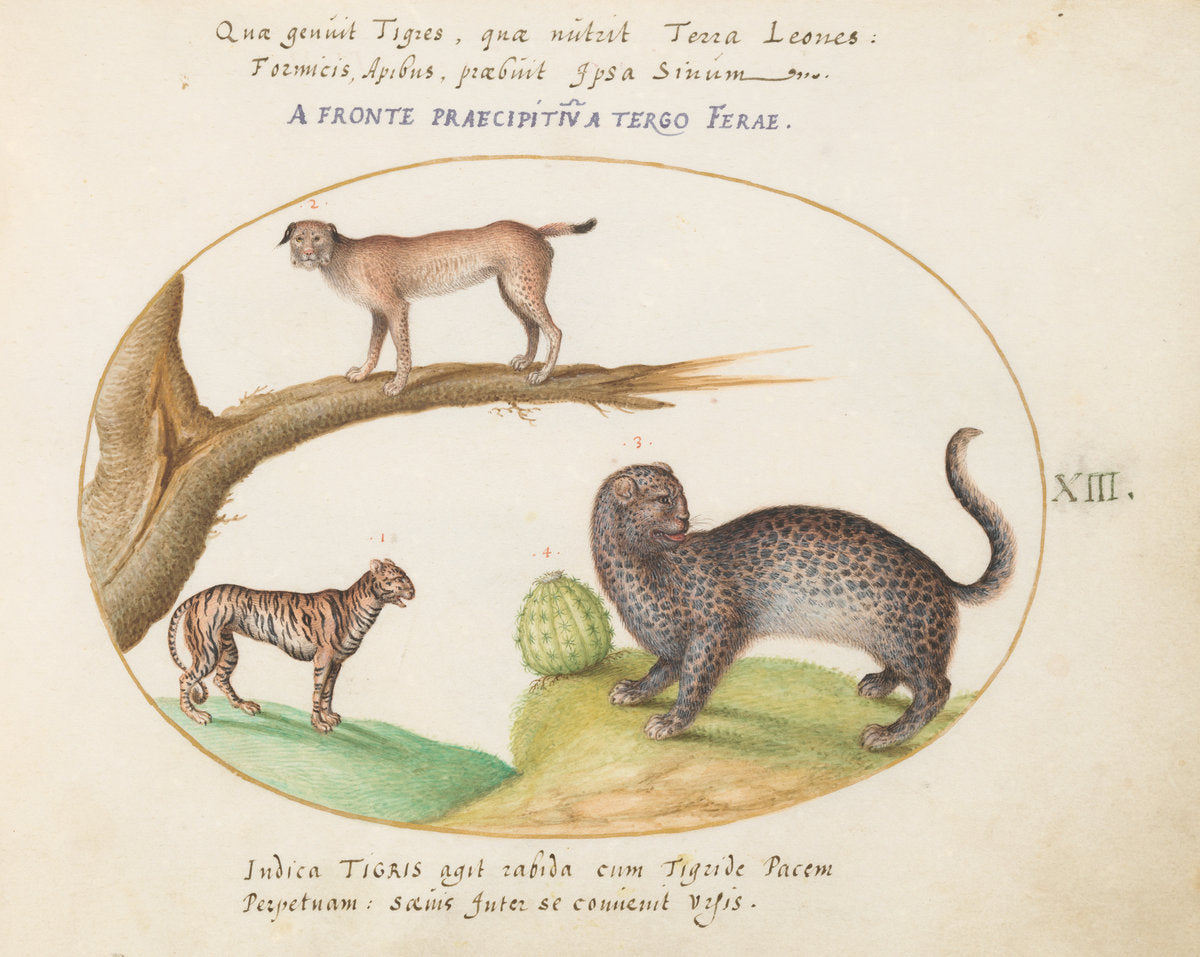 Quæ genuit Tigres, quæ nutrit Terra Leones:
Formicis, Apibus, præbuit Ipsa Sinum
A FRONTE PRAECIPITIV̄ A TERGO FERAE.
·2·
·3·
XIII.
·1·
·4·
Indica TIGRIS agit rabida cum Tigride Pacem
Perpetuam: sæuis Inter se conuenit Vrsis.